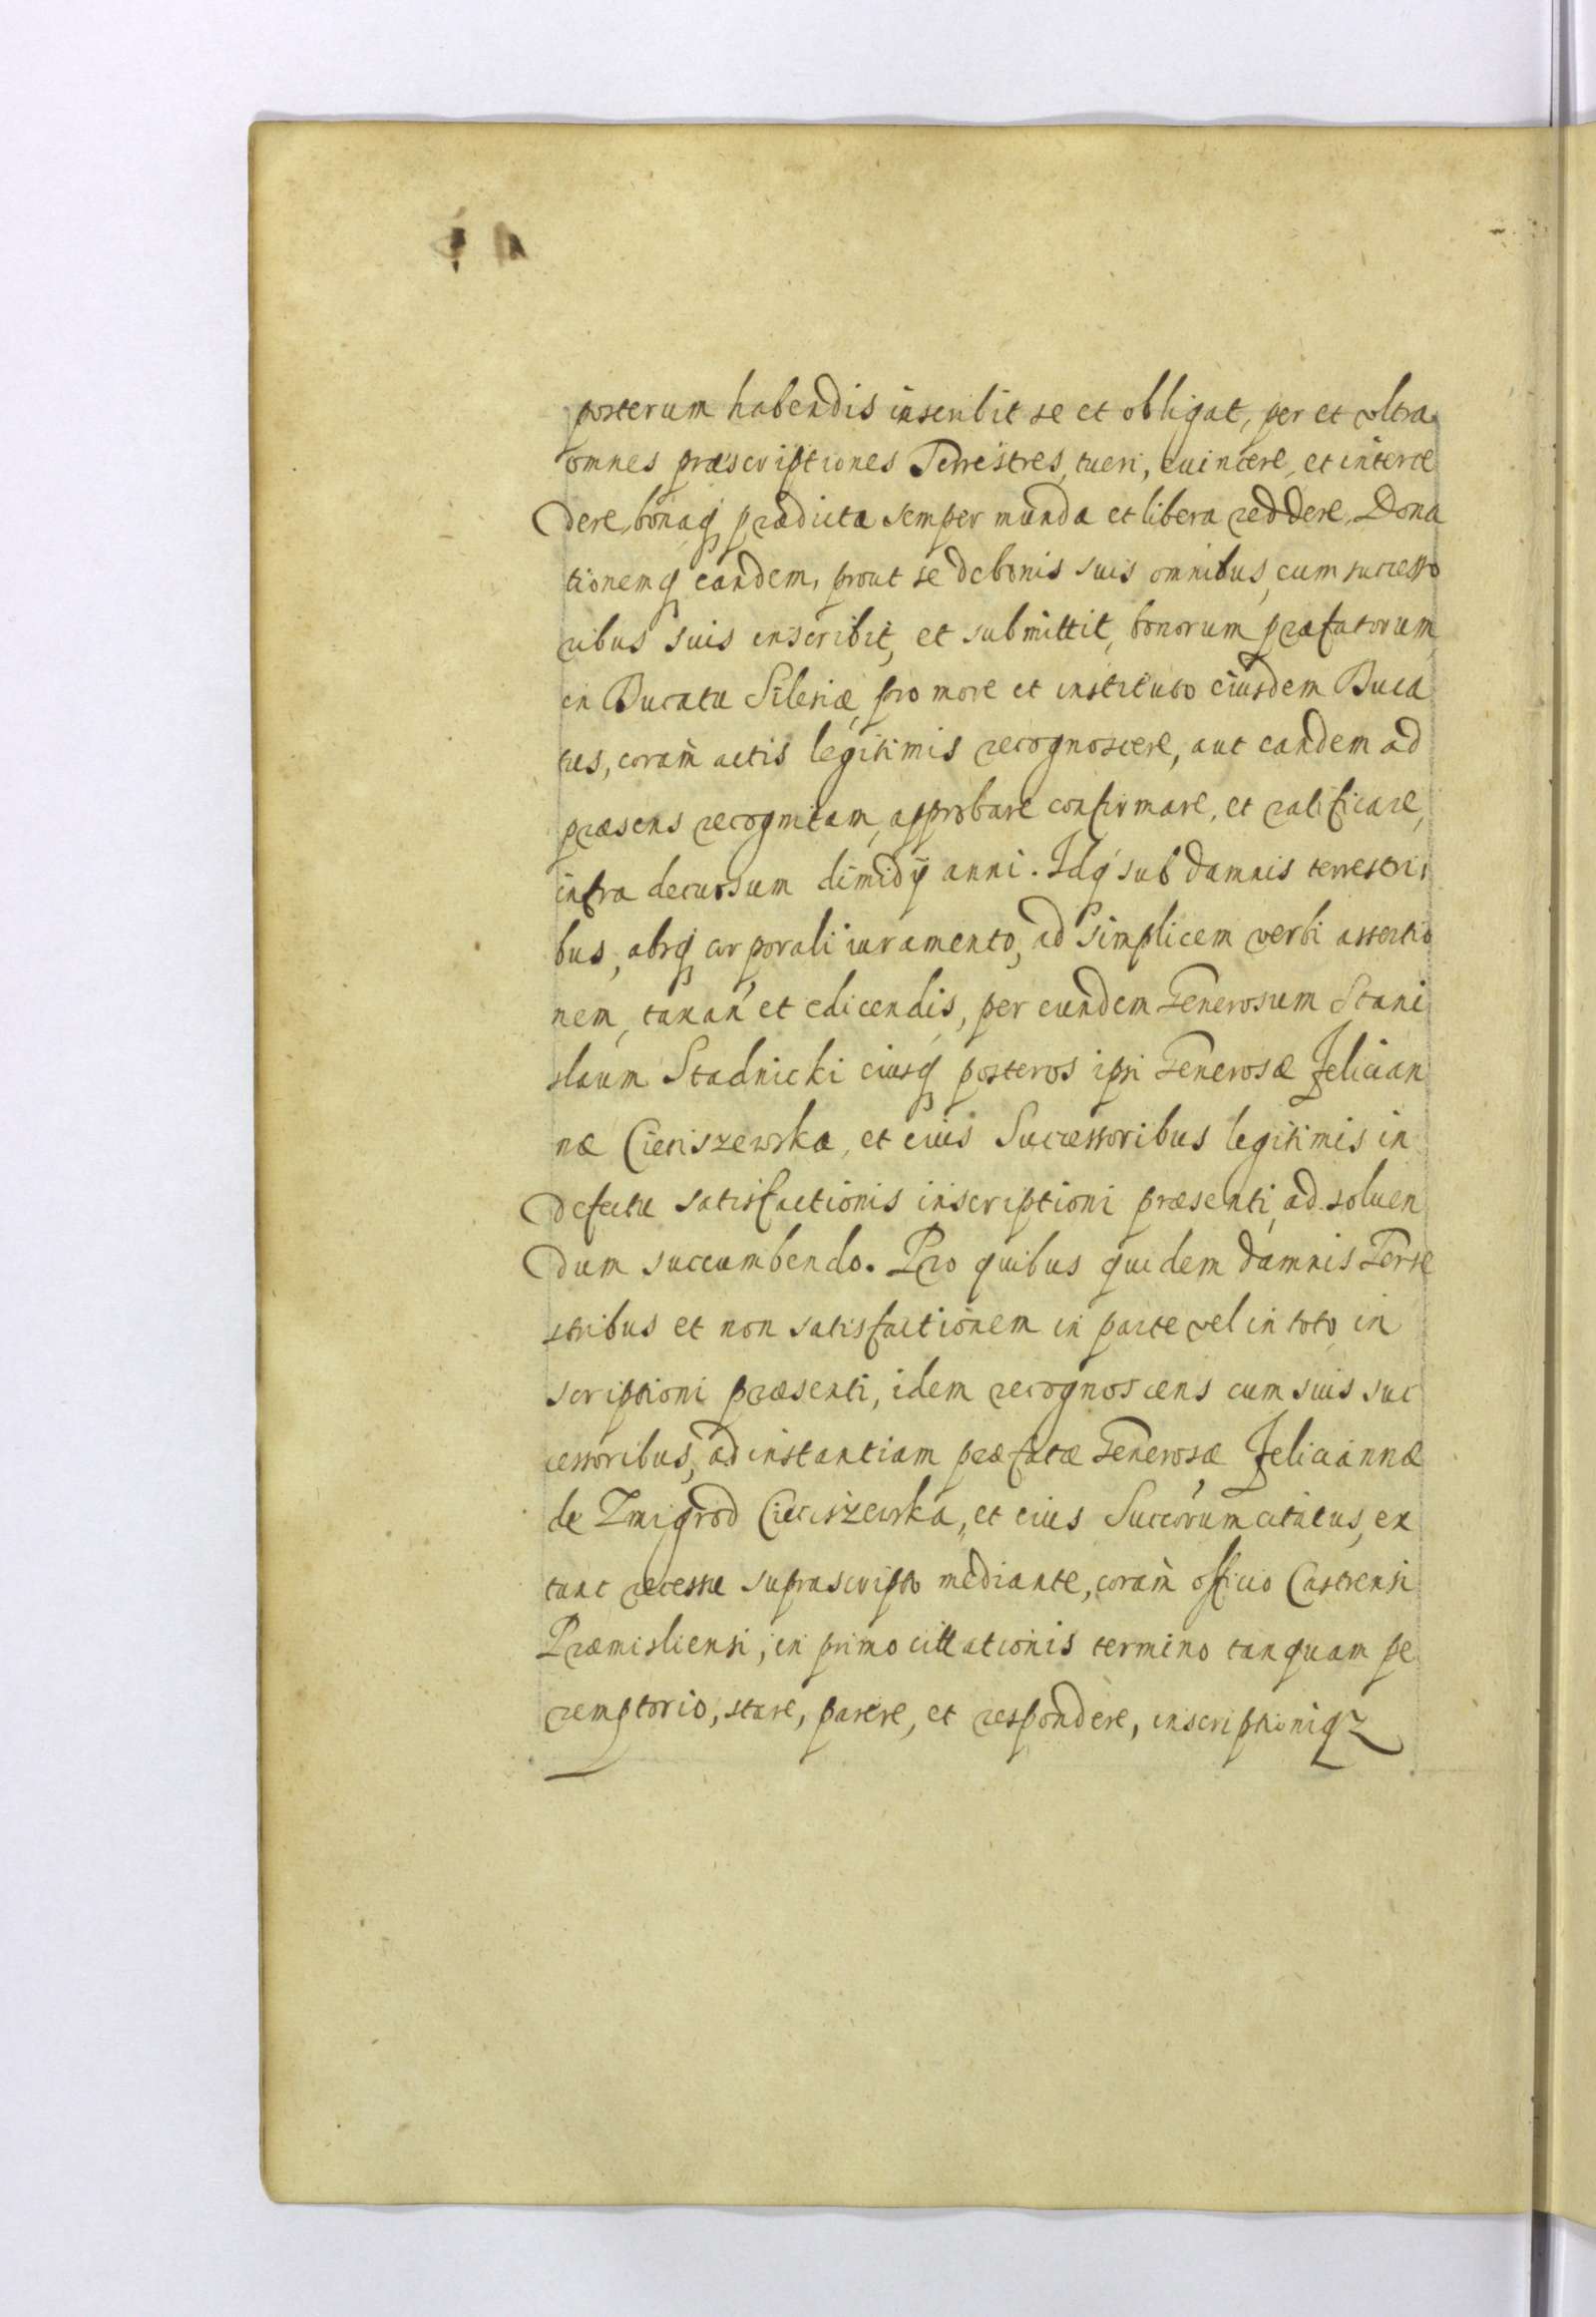 posterum habendis inscribit se et obligat, per et vltra
omnes præscriptiones Terrestres, tueri, euincere, et interce
dere, bonaq prædicta semper munda et libera reddere, Dona
tionemq eandem, prout se de bonis suis omnibus, cum successo
ribus suis inscribit, et submittit, bonorum præfatorum,
in Ducatu Silesiæ, pro more et instituto eiusdem Duca
tus, coram actis legitimis recognoscere, aut eandem ad
præsens recognitam, approbare confirmare, et ratificare,
infra decursum dimidij anni. Idq sub damnis terrestri,
bus, absq corporali iuramento, ad simplicem verbi assertio
nem, taxan et edicendis, per eundem Generosum Stani
slaum Stadnicki eiusq posteros ipsi Generosæ Felician
næ Cieciszewska, et eius Successoribus legitimis in
defectu satisfactionis inscriptioni præsenti, ad soluen
dum succumbendo. Pro quibus quidem damnis Terre
stribus et non satisfactionem in parte vel in toto, in
scriptioni præsenti, idem recognoscens cum suis suc
cessoribus, ad instantiam præfatæ Generosæ Feliciannæ
de Zmigrod Cieciszewska, et eius Succorum citatus, ex
tunc recessu suprascripto mediante, coram officio Castrensi
Præmisliensi, in primo cittationis termino tanquam pe
remptorio, stare, parere, et respondere, inscriptioniqz